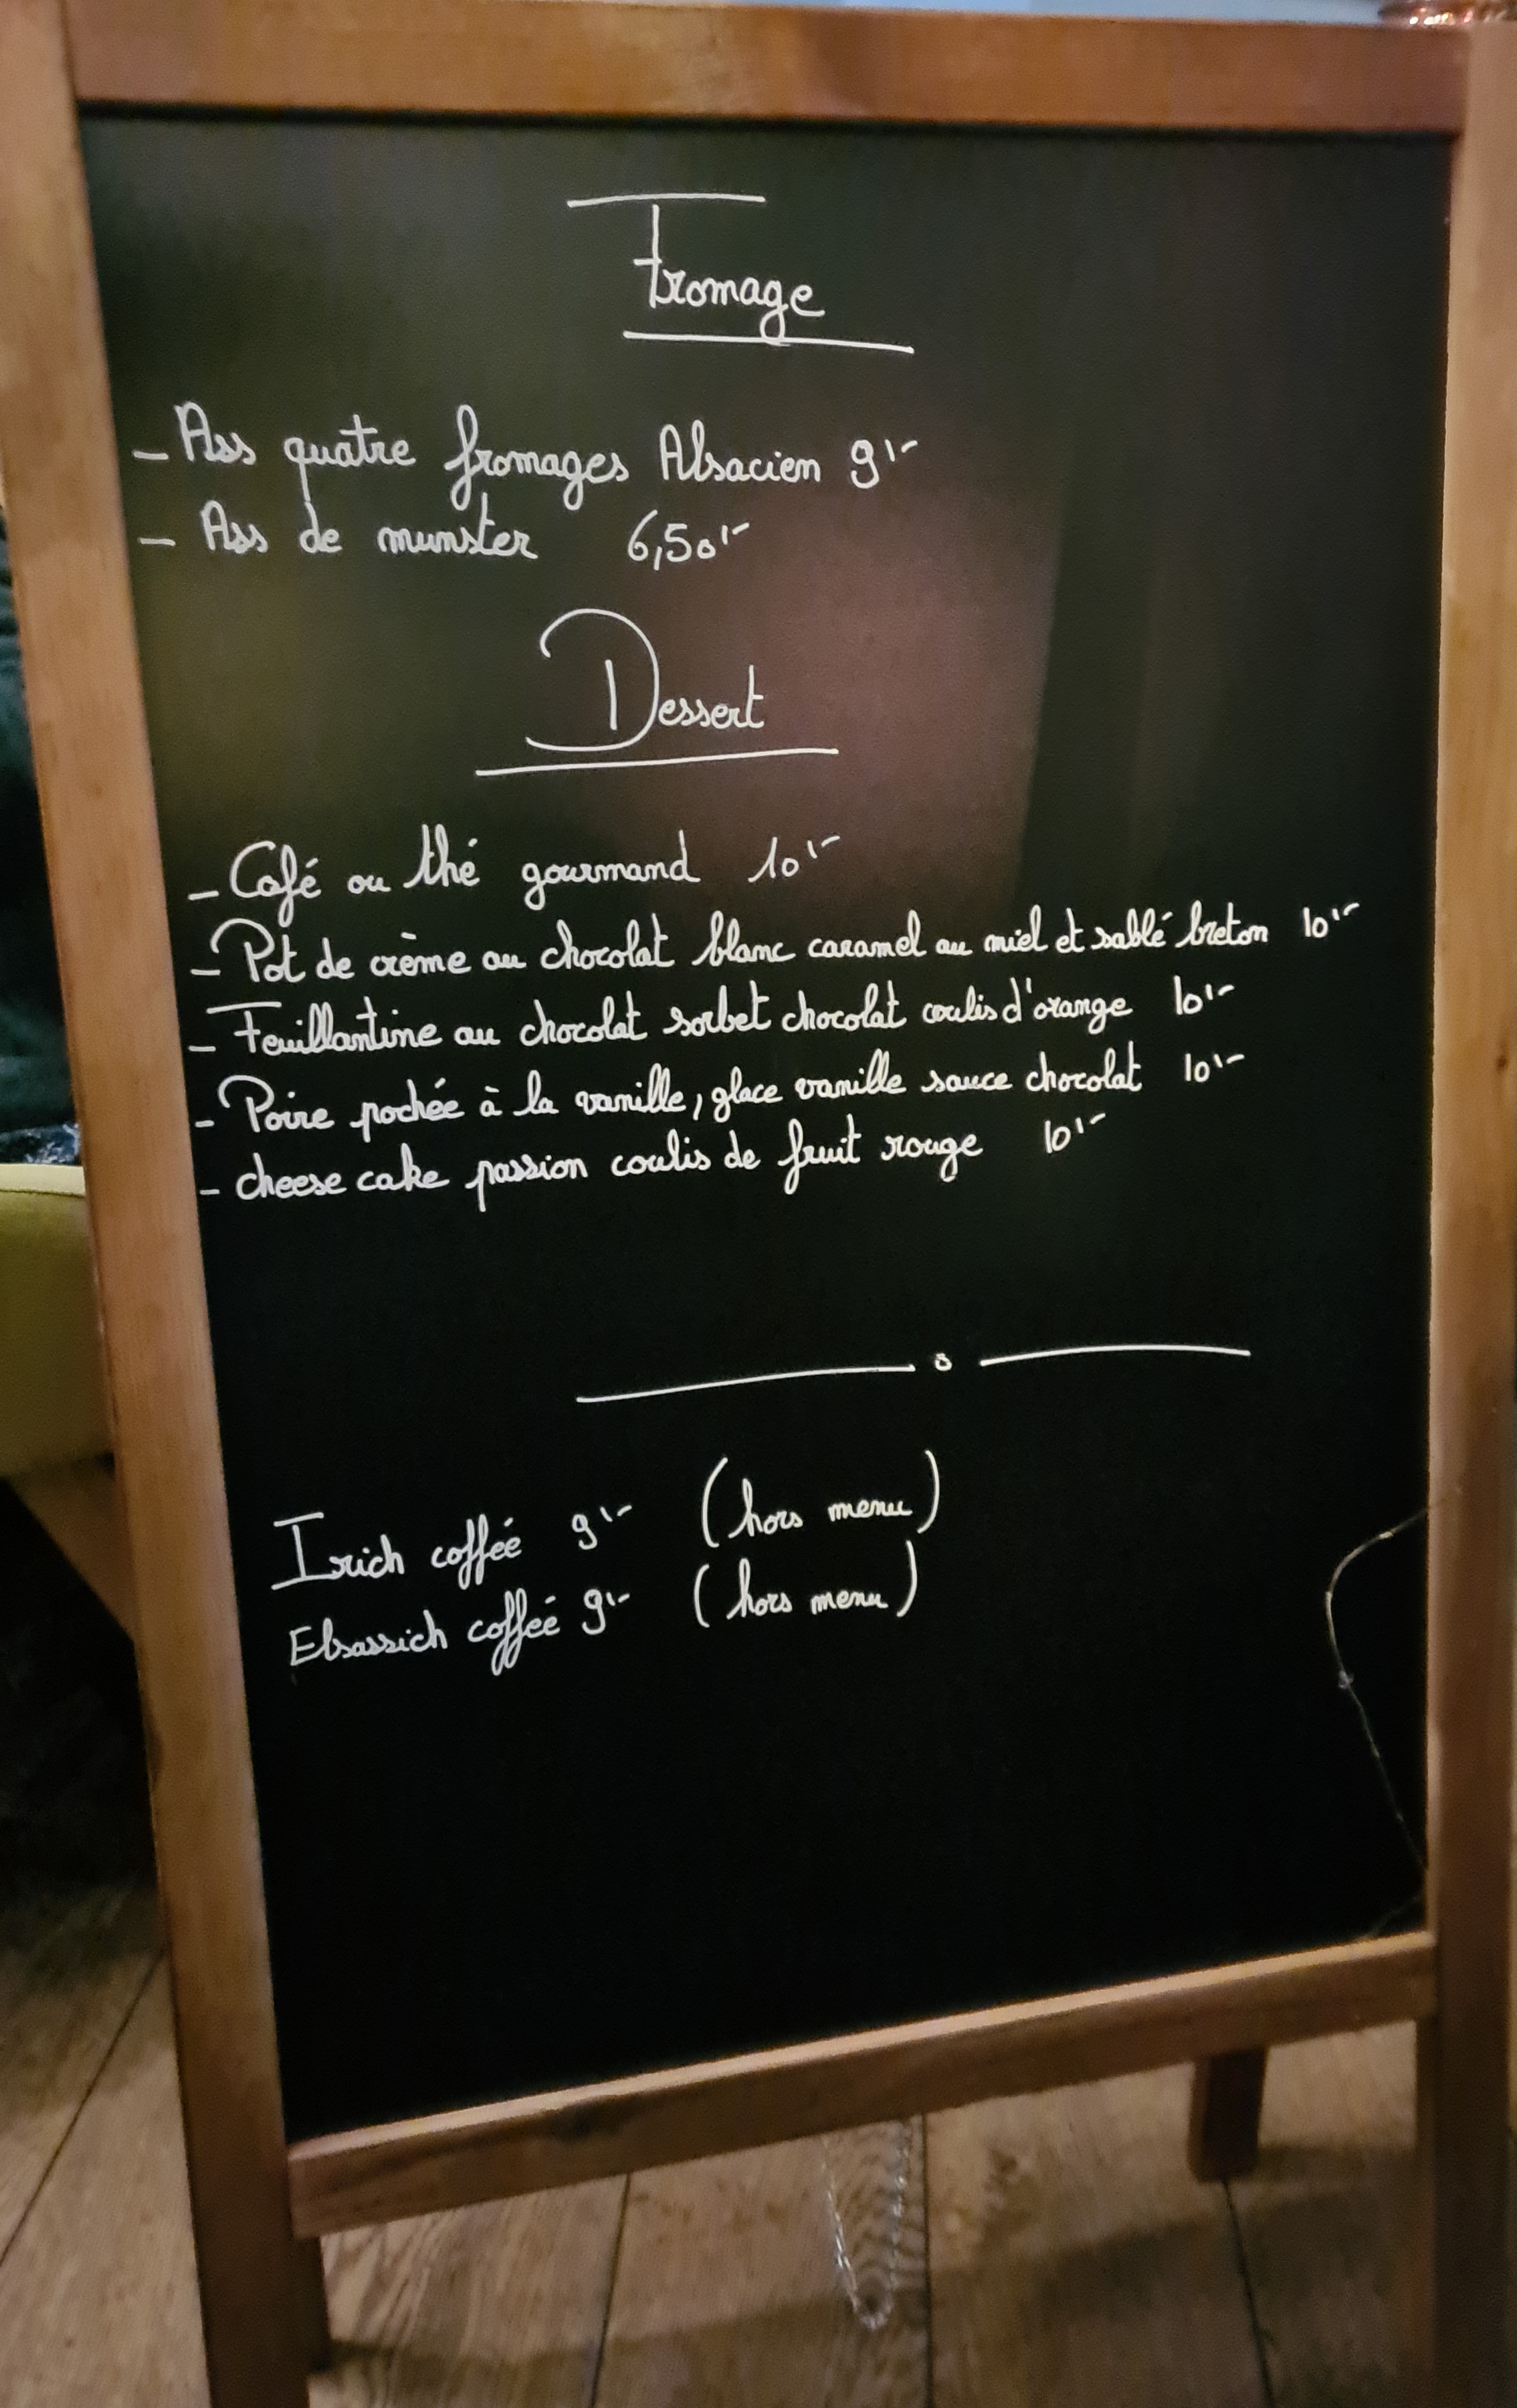 Fromage
- Ass quatre fromages Alsacien 9'-
- Ass de munster 6,50'-
Dessert
- Café ou thé gourmand 10'-
- Pot de crème au chocolat blanc caramel au miel et sablé breton 10'-
- Feuillantine au chocolat sorbet chocolat coulis d'orange 10'-
- Poire pochée à la vanille, glace vanille sauce chocolat 10'-
- cheese cake passion coulis de fruit rouge 10'-
Irich coffée 9'- (hors menu)
Elsassich coffeé 9'- (hors menu)